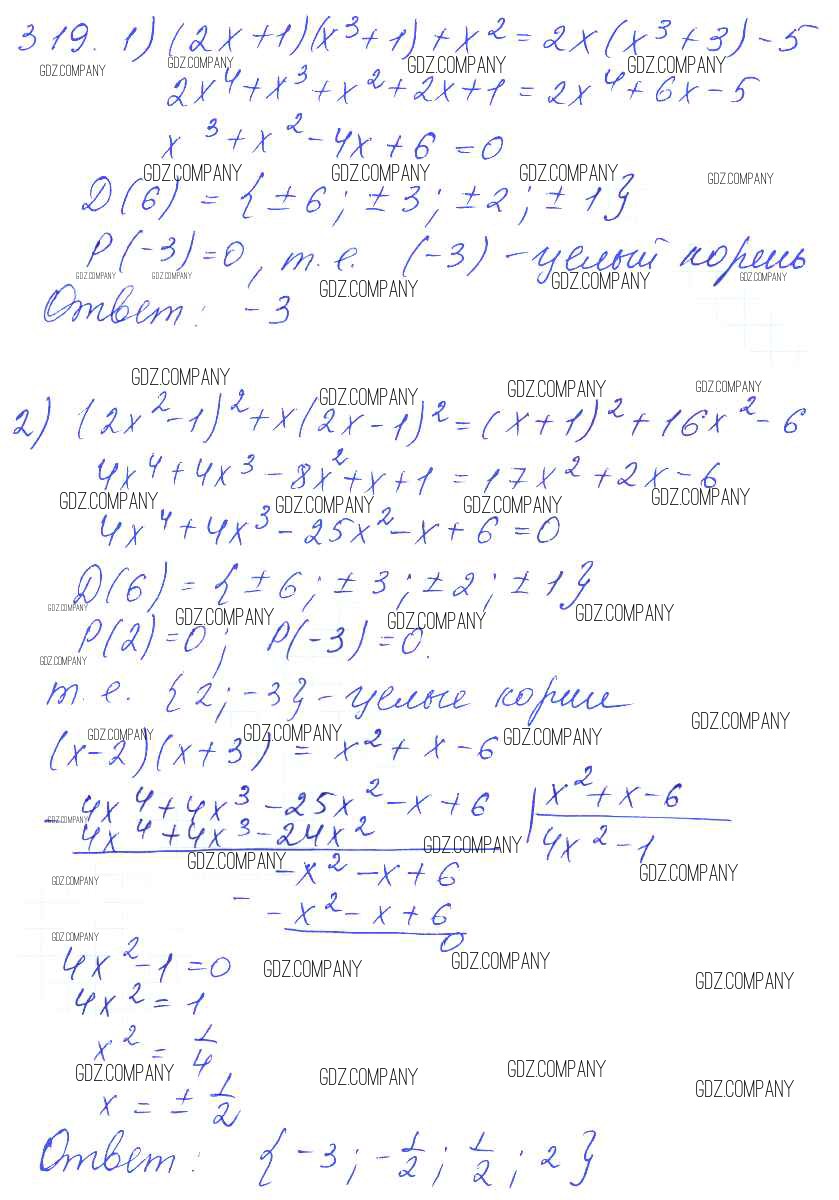 319. 1) (2x+1)(x³+1)+x²=2x(x³+3)-5
GDZ.COMPANY GDZ.COMPANY GDZ.COMPANY GDZ.COMPANY
2x⁴+x³+x²+2x+1=2x⁴+6x-5
x³+x²-4x+6=0
GDZ.COMPANY GDZ.COMPANY GDZ.COMPANY GDZ.COMPANY
D(6)={±6; ±3; ±2; ±1}
P(-3)=0, т.е. (-3) - целый корень
GDZ.COMPANY GDZ.COMPANY GDZ.COMPANY GDZ.COMPANY GDZ.COMPANY
Ответ: -3
GDZ.COMPANY GDZ.COMPANY GDZ.COMPANY GDZ.COMPANY
2) (2x²-1)²+x(2x-1)²=(x+1)²+16x²-6
4x⁴+4x³-8x²+x+1=17x²+2x-6
GDZ.COMPANY GDZ.COMPANY GDZ.COMPANY GDZ.COMPANY
4x⁴+4x³-25x²-x+6=0
D(6)={±6; ±3; ±2; ±1}
GDZ.COMPANY GDZ.COMPANY GDZ.COMPANY GDZ.COMPANY
P(2)=0; P(-3)=0.
GDZ.COMPANY
т.е. {2; -3} - целые корни
GDZ.COMPANY GDZ.COMPANY GDZ.COMPANY GDZ.COMPANY
(x-2)(x+3)=x²+x-6
- 4x⁴+4x³-25x²-x+6 | x²+x-6
4x⁴+4x³-24x² 4x²-1
GDZ.COMPANY GDZ.COMPANY GDZ.COMPANY GDZ.COMPANY
-x²-x+6
GDZ.COMPANY
- -x²-x+6
0
GDZ.COMPANY GDZ.COMPANY GDZ.COMPANY GDZ.COMPANY
4x²-1=0
4x²=1
x²=1/4
GDZ.COMPANY GDZ.COMPANY GDZ.COMPANY GDZ.COMPANY
x=±1/2
Ответ: {-3; -1/2; 1/2; 2}